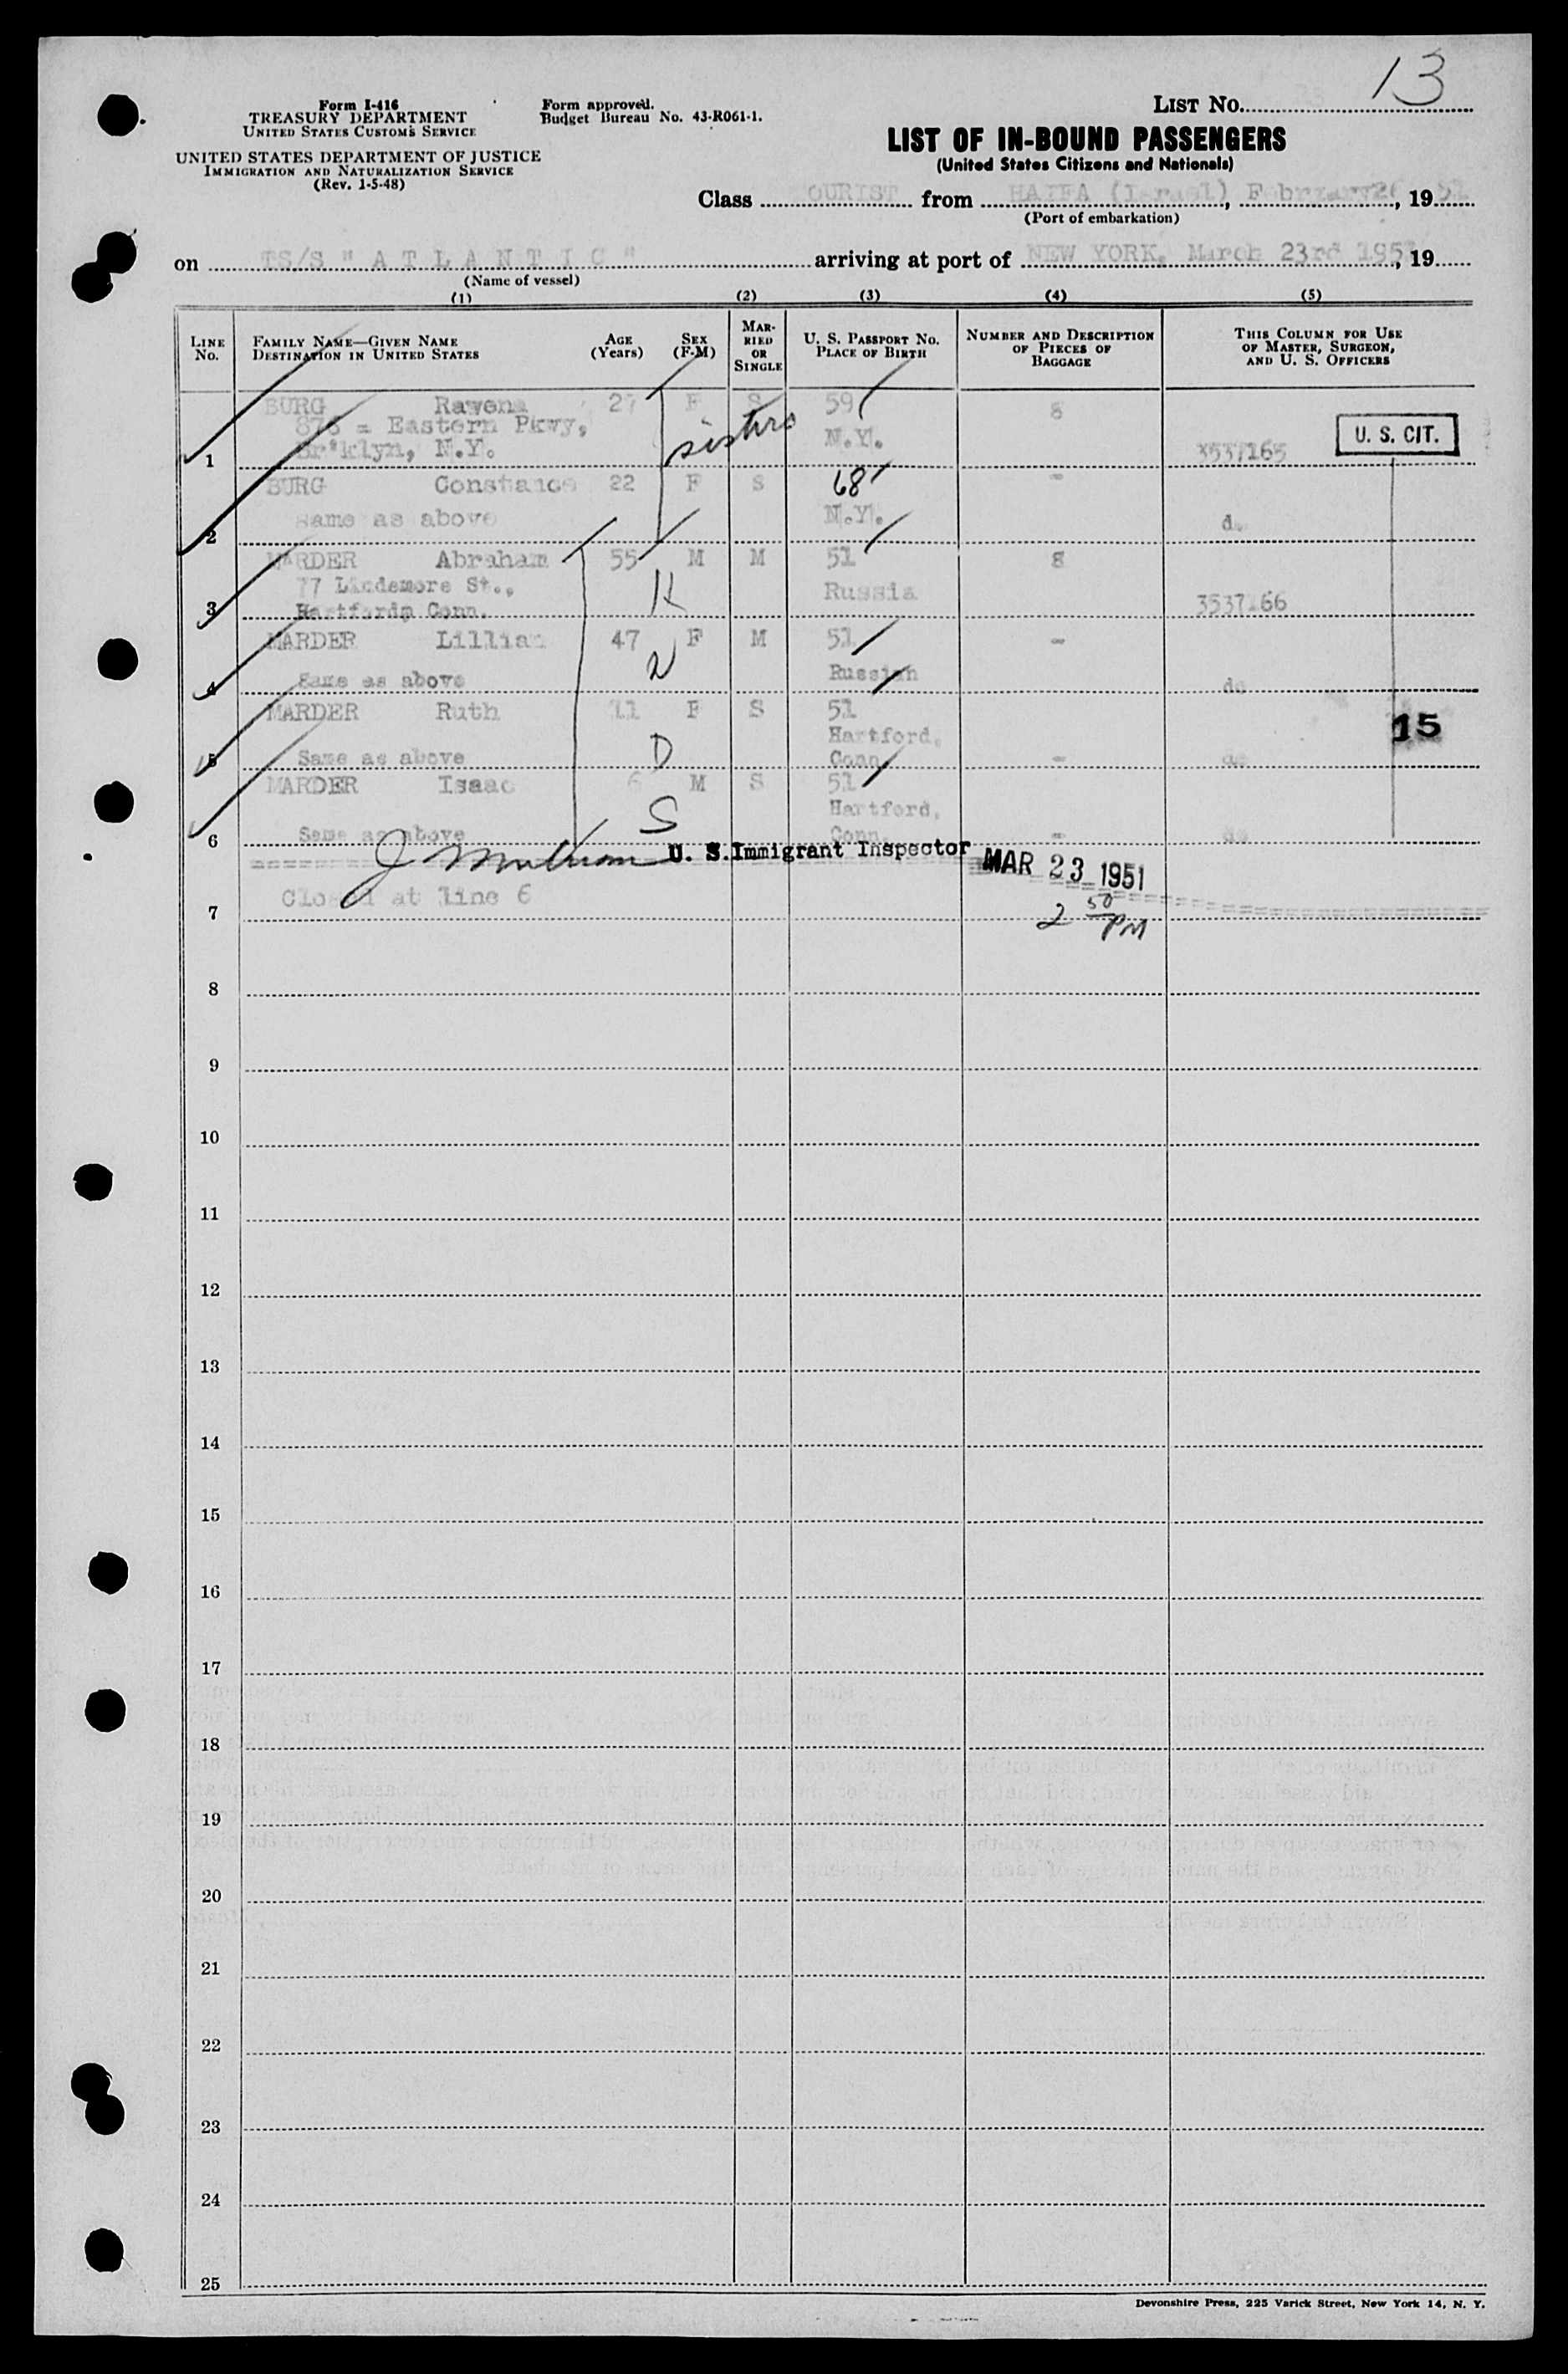 13
Form I-416
TREASURY DEPARTMENT
UNITED STATES CUSTOMS SERVICE
Form approved.
Budget Bureau No. 43-R061-1.
LIST NO.
UNITED STATES DEPARTMENT OF JUSTICE
IMMIGRATION AND NATURALIZATION SERVICE
(Rev. 1-5-48)
LIST OF IN-BOUND PASSENGERS
(United States Citizens and Nationals)
Class OURIST from HAIFA (Israel), February 26, 19 51
(Port of embarkation)
on TS/S "ATLANTIC" arriving at port of NEW YORK, March 23rd 195, 19
(Name of vessel)
(1) (2) (3) (4) (5)
LINE No. FAMILY NAME—GIVEN NAME DESTINATION IN UNITED STATES AGE (Years) SEX (F-M) MARRIED OR SINGLE U. S. PASSPORT NO. PLACE OF BIRTH NUMBER AND DESCRIPTION OF PIECES OF BAGGAGE THIS COLUMN FOR USE OF MASTER, SURGEON, AND U. S. OFFICERS
BURG Rawena 27 F S 59 8
876 = Eastern Pkwy, sisters N.Y. U. S. CIT.
1 Br'klyn, N.Y. 3537165
BURG Constance 22 F S 68 -
2 same as above N.Y. do
MARDER Abraham 55 M M 51 8
77 Lindemore St., H Russia
3 Hartford, Conn. 3537166
MARDER Lillian 47 F M 51 -
4 Same as above W Russian do
MARDER Ruth 11 F S 51 15
Hartford,
5 Same as above D Conn. - do
MARDER Isaac 6 M S 51
Hartford,
6 Same as above S Conn. - do
U. S. Immigrant Inspector MAR 23 1951
7 Closed at line 6 2 50 PM
8
9
10
11
12
13
14
15
16
17
18
19
20
21
22
23
24
25
Devonshire Press, 225 Varick Street, New York 14, N. Y.